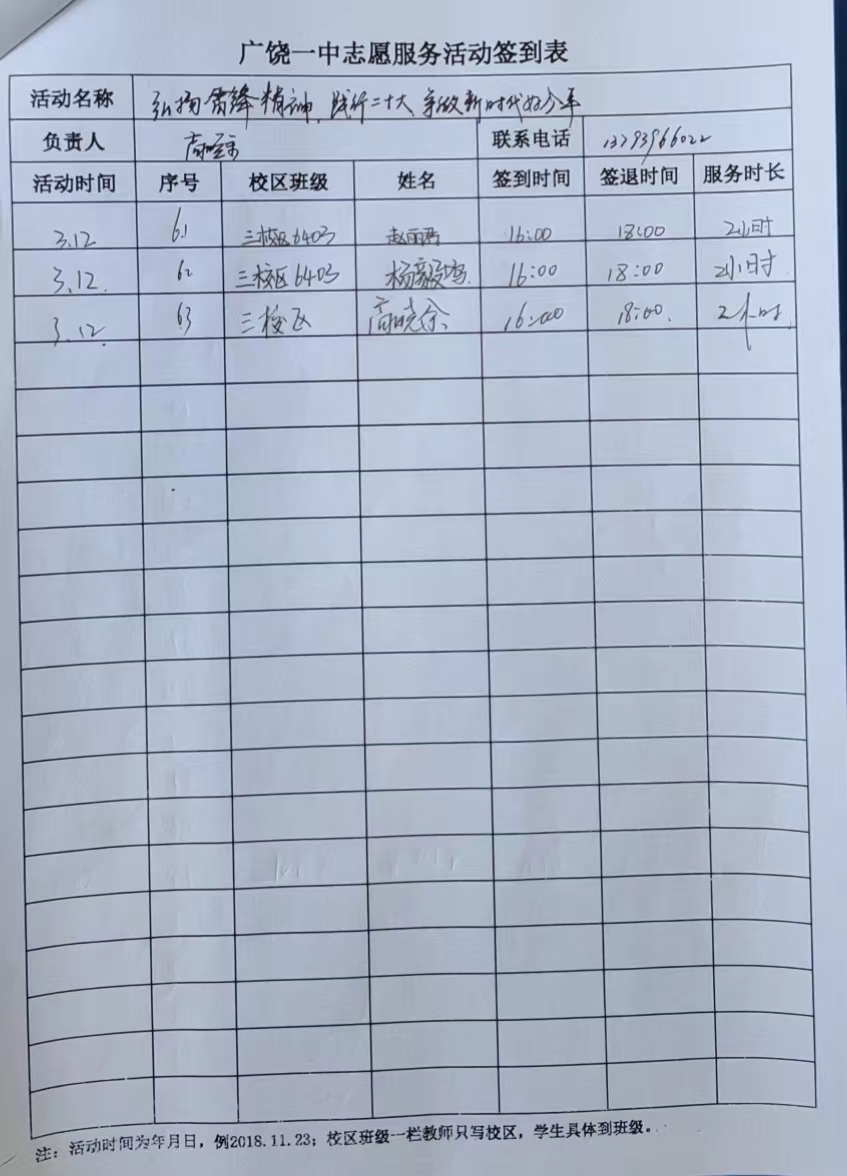 广饶一中志愿服务活动签到表
活动名称 弘扬雷锋精神、践行二十大、争做新时代好少年
负责人 联系电话 13793966022
活动时间 序号 校区班级 姓名 签到时间 签退时间 服务时长
3.12 61 三校区6403 赵丽君 16:00 18:00 2小时
3.12. 62 三校区6403 杨毅 16:00 18:00 2小时.
3.12. 63 三校区 高晓余 16:00 18:00. 2小时.
注：活动时间为年月日，例2018.11.23；校区班级一栏教师只写校区，学生具体到班级。